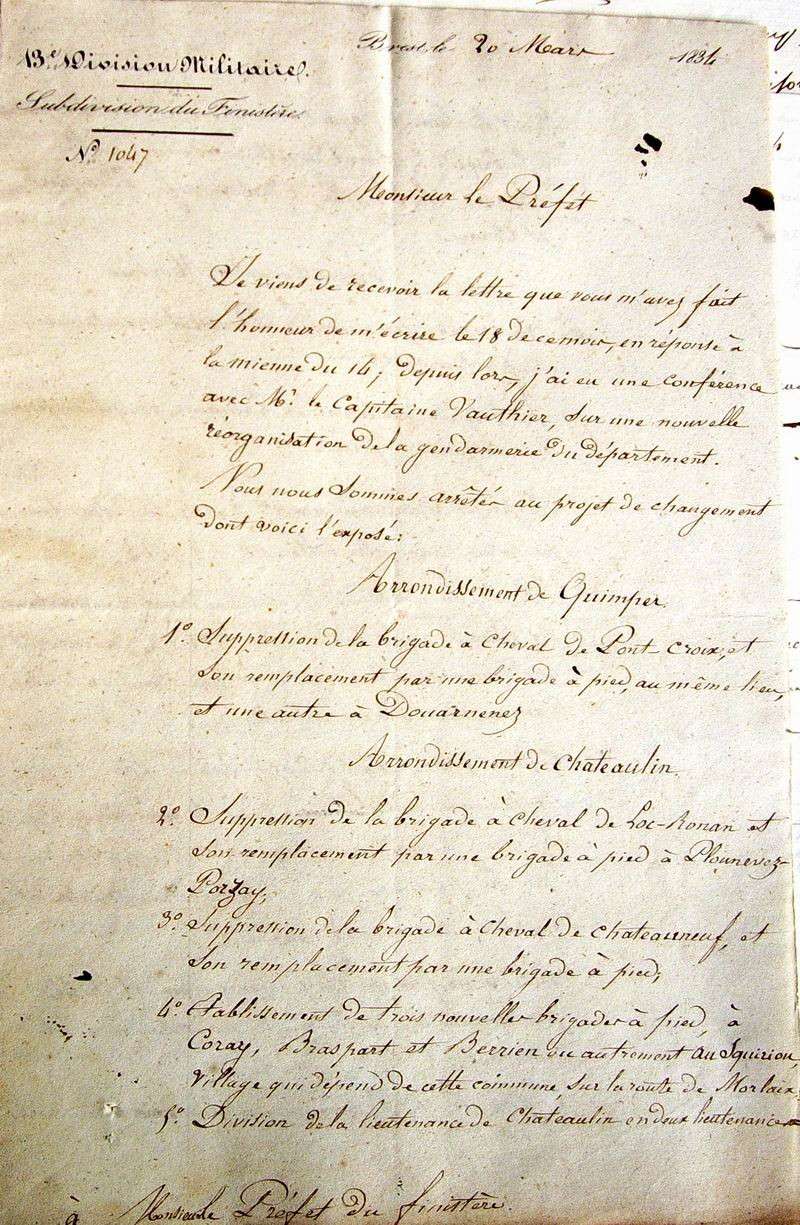 13e. Division Militaire.
Subdivision du Finistère.
No. 1047
Brest, le 20 Mars 1834
Monsieur le Préfet
Je viens de recevoir la lettre que vous m'avez fait
l'honneur de m'écrire le 18 de ce mois, en réponse à
la mienne du 14; depuis lors, j'ai eu une conférence
avec Mr. le Capitaine Vauthier, sur une nouvelle
réorganisation de la gendarmerie du département.
Nous nous sommes arrêtés au projet de changement
dont voici l'exposé:
Arrondissement de Quimper.
1o. Suppression de la brigade à cheval de Pont Croix, et
son remplacement par une brigade à pied, au même lieu,
et une autre à Douarnenez
Arrondissement de Chateaulin.
2o. Suppression de la brigade à cheval de Loc-Ronan et
son remplacement par une brigade à pied à Plounevez-
Porzay,
3o. Suppression de la brigade à cheval de Chateauneuf, et
son remplacement par une brigade à pied,
4o. Etablissement de trois nouvelles brigades à pied, à
Coray, Braspart et Berrien ou autrement au Squiriou,
village qui dépend de cette commune, sur la route de Morlaix
5o. Division de la lieutenance de Chateaulin en deux lieutenances
à Monsieur le Préfet du finistère.